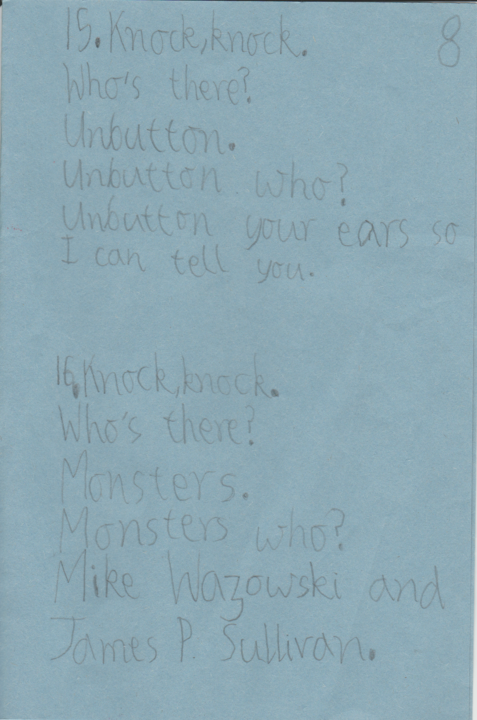 15. Knock, knock.
8
Who's there?
Unbutton.
Unbutton who?
Unbutton your ears so
I can tell you.
16. Knock, knock.
Who's there?
Monsters.
Monsters who?
Mike Wazowski and
James P. Sullivan.